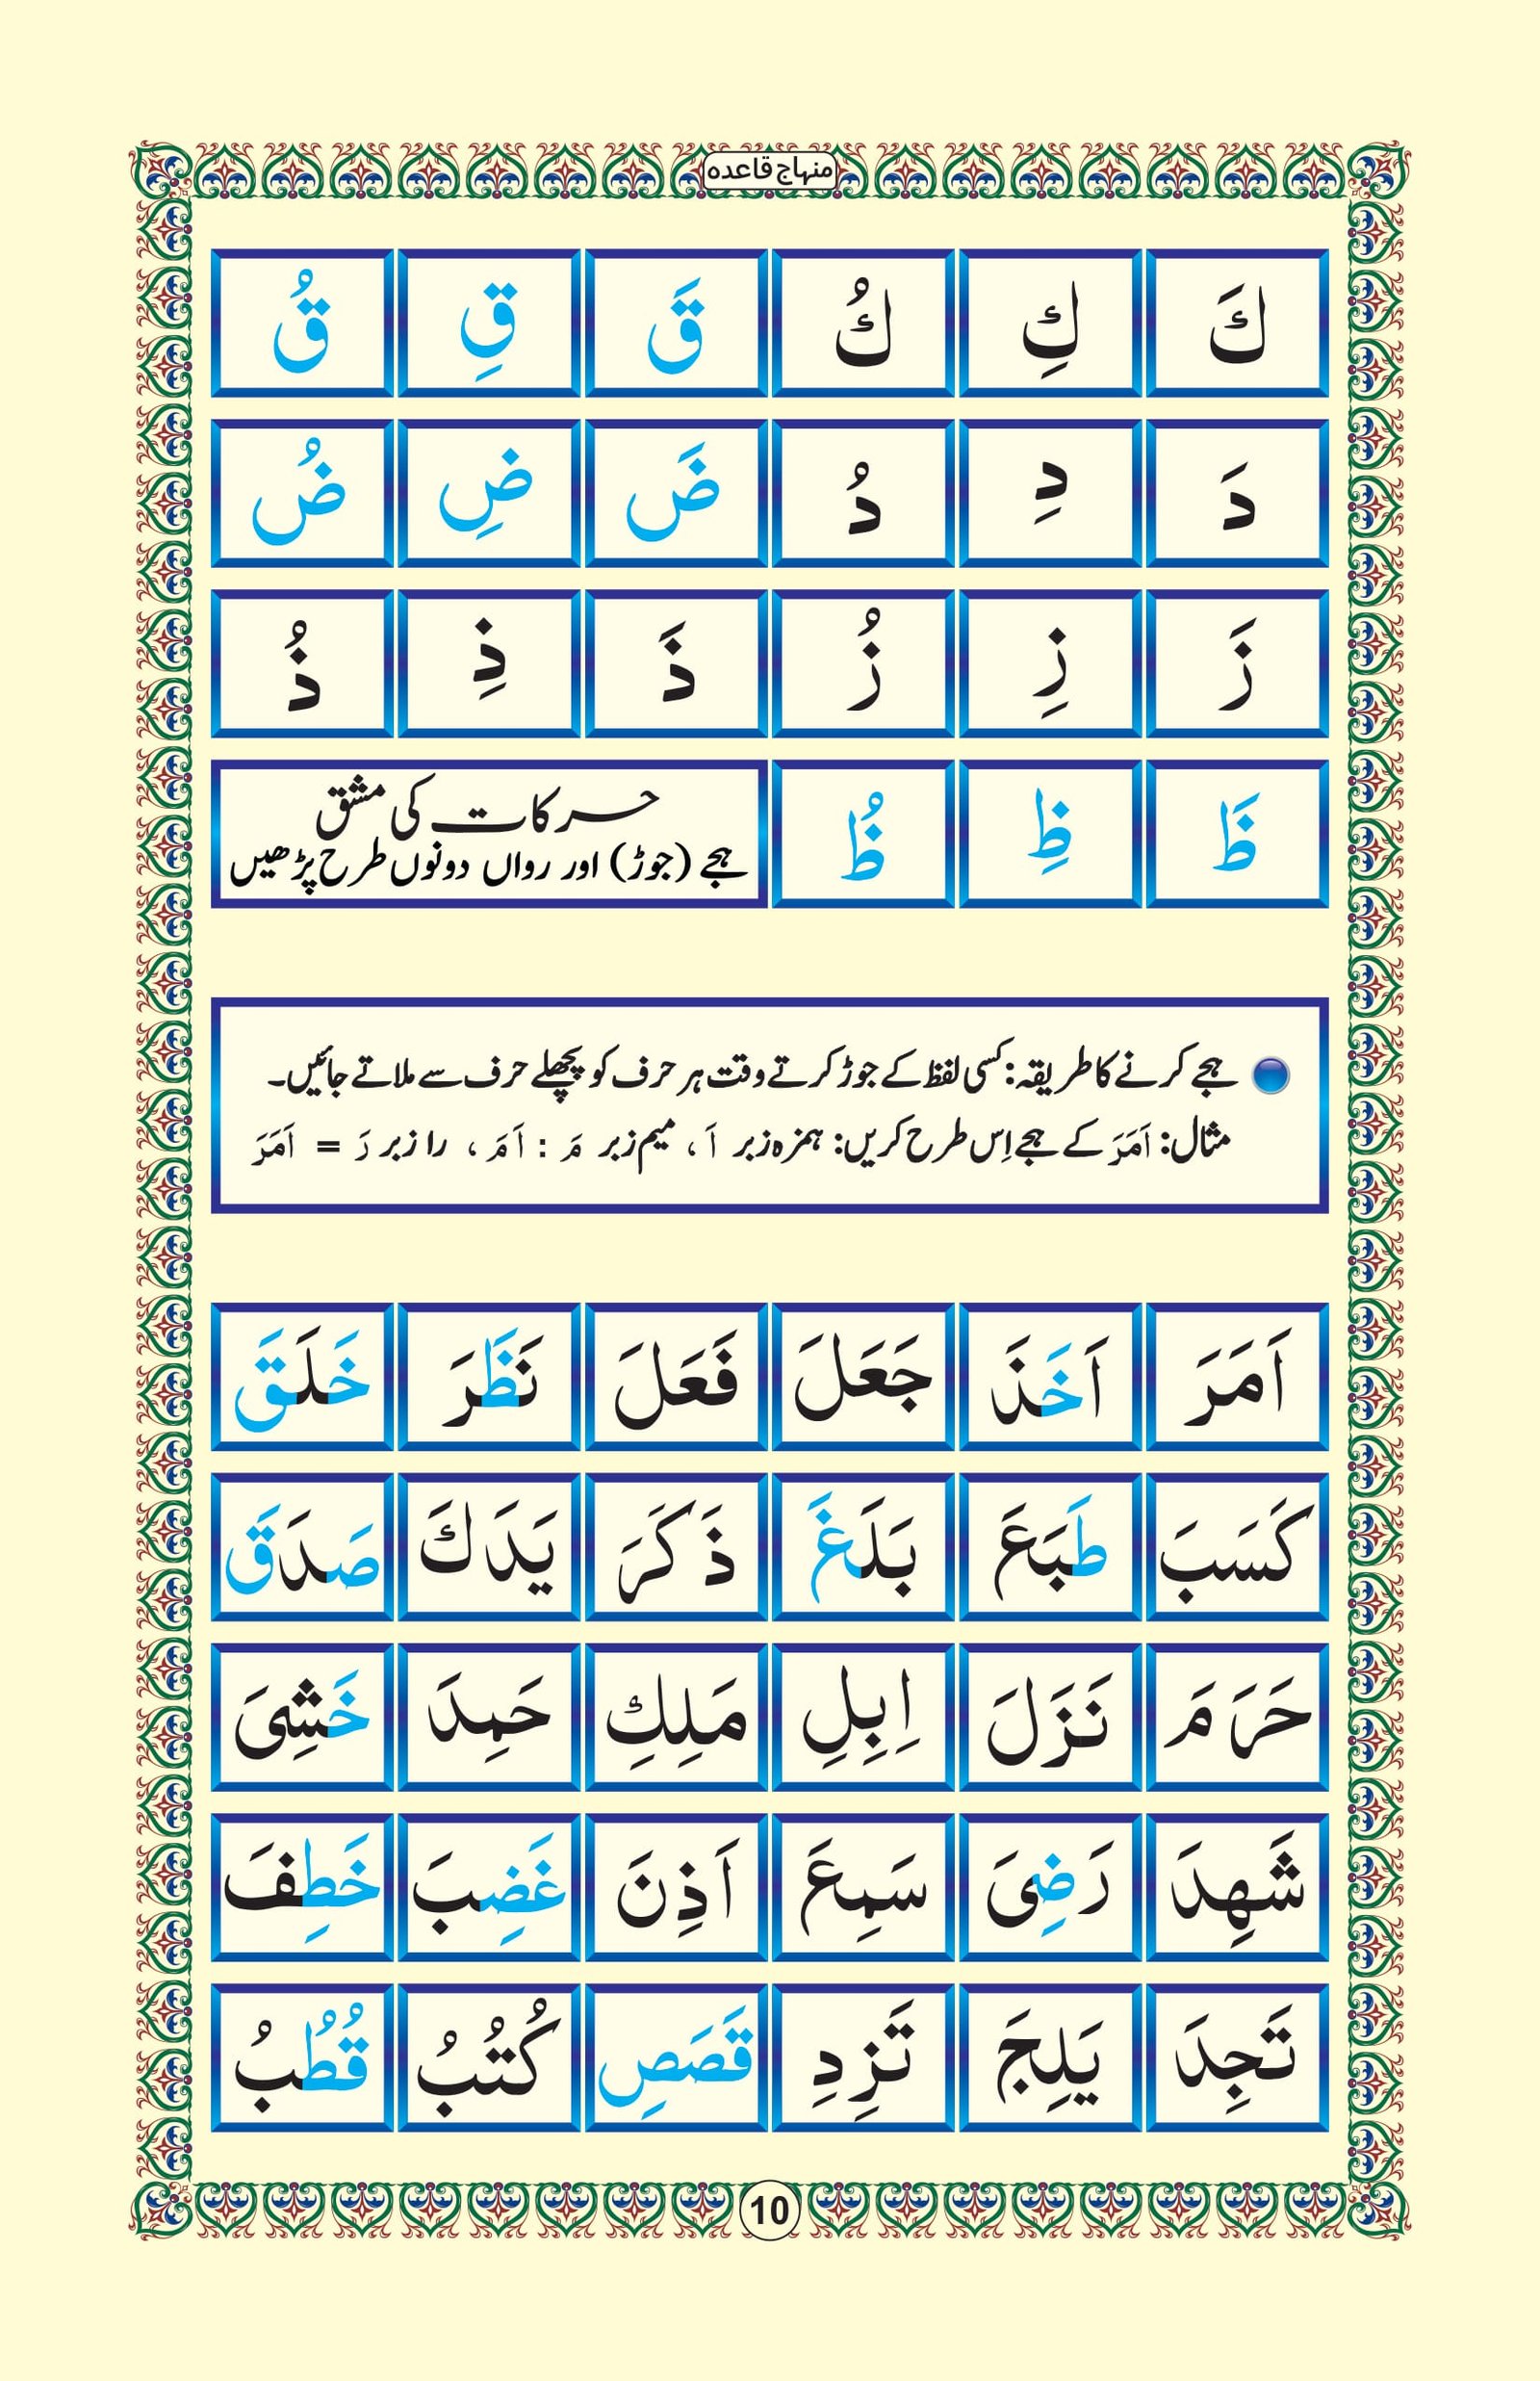 منہاج قاعدہ
كَ كِ كُ قَ قِ قُ
دَ دِ دُ ضَ ضِ ضُ
زَ زِ زُ ذَ ذِ ذُ
ظَ ظِ ظُ
حرکات کی مشق
ہجے (جوڑ) اور رواں دونوں طرح پڑھیں
ہجے کرنے کا طریقہ: کسی لفظ کے جوڑ کرتے وقت ہر حرف کو پچھلے حرف سے ملاتے جائیں۔
مثال: اَمَرَ کے ہجے اِس طرح کریں: ہمزہ زبر اَ ، میم زبر مَ : اَمَ ، را زبر رَ = اَمَرَ
اَمَرَ اَخَذَ جَعَلَ فَعَلَ نَظَرَ خَلَقَ
كَسَبَ طَبَعَ بَلَغَ ذَكَرَ يَدَكَ صَدَقَ
حَرَمَ نَزَلَ اِبِلِ مَلِكِ حَمِدَ خَشِىَ
شَهِدَ رَضِىَ سَمِعَ اَذِنَ غَضِبَ خَطِفَ
تَجِدَ يَلِجَ تَزِدِ قَصَصِ كُتُبُ قُطُبُ
10